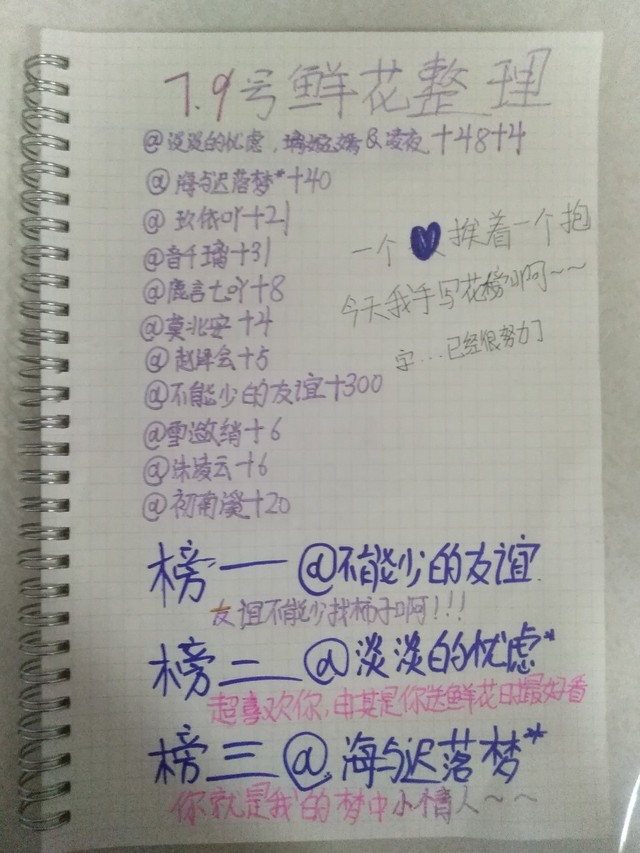 7.9号鲜花整理
@淡淡的忧虑,璃嫣嫣&凌夜+48+4
@海与迟落梦*+40
@玖依吖+21
@音千璃+31
@鹿言七吖+8
@莫北安+4
@赵绎会+5
@不能少的友谊+300
@雪邀绡+6
@洙凌云+6
@初南溪+20
一个挨着一个抱
今天我手写花榜啊啊~~
字...已经很努力了
榜一@不能少的友谊
友谊不能少找柿子啊!!!
榜二@淡淡的忧虑*
超喜欢你,尤其是你送鲜花时最好看
榜三@海与迟落梦**
你就是我的梦中小情人~~